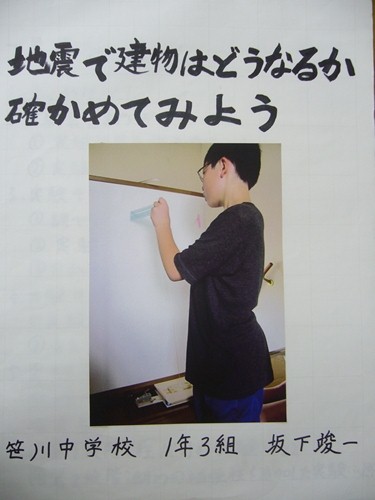 地震で建物はどうなるか
確かめてみよう
笹川中学校 1年3組 坂下竣一